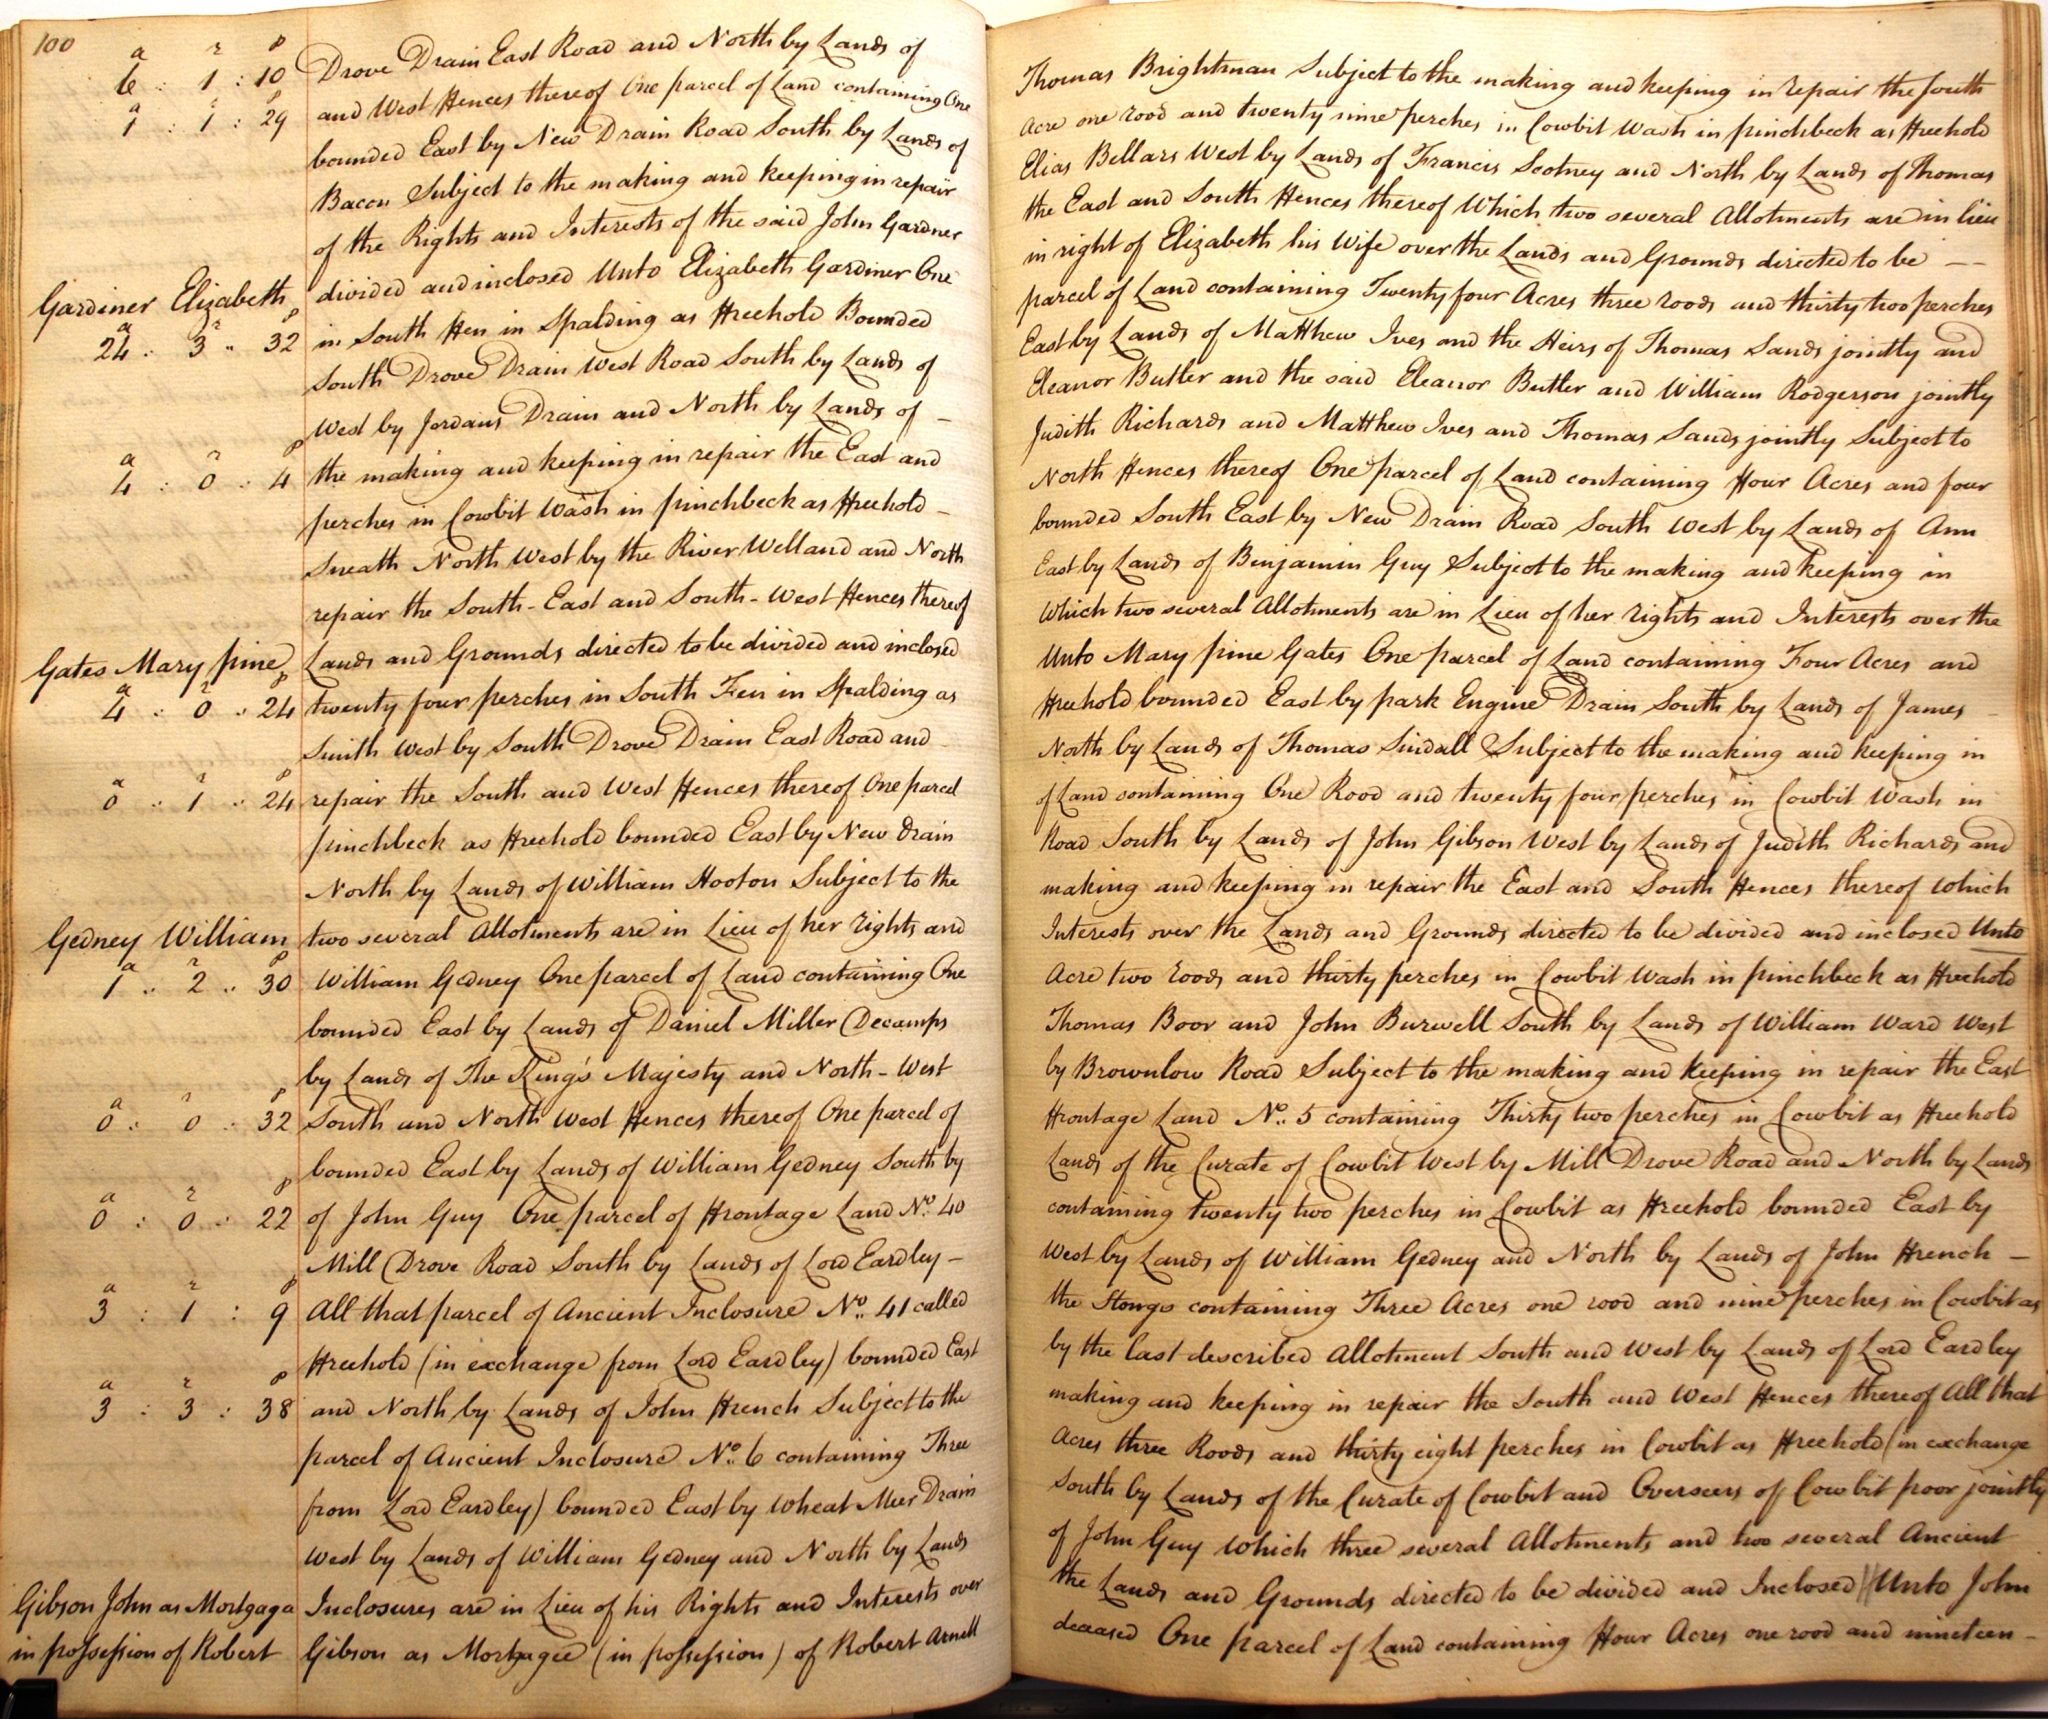 100
a r p
6 : 1 : 10
Drove Drain East Road and North by Lands of Thomas Brightman Subject to the making and keeping in repair the South
a r p
1 : 1 : 29
and West Fences thereof One parcel of Land containing One Acre one rood and twenty nine perches in Cowbit Wash in pinchbeck as Freehold
bounded East by New Drain Road South by Lands of Elias Bellars West by Lands of Francis Scotney and North by Lands of Thomas
Bacon Subject to the making and keeping in repair the East and South Fences thereof Which two several Allotments are in lieu
of the Rights and Interests of the said John Gardner in right of Elizabeth his Wife over the Lands and Grounds directed to be —
Gardiner Elizabeth
divided and inclosed Unto Elizabeth Gardiner One parcel of Land containing Twenty four Acres three roods and thirty two perches
a r p
24 : 3 : 32
in South Fen in Spalding as Freehold Bounded East by Lands of Matthew Ives and the Heirs of Thomas Sands jointly and
South Drove Drain West Road South by Lands of Eleanor Butler and the said Eleanor Butler and William Rodgerson jointly
West by Jordans Drain and North by Lands of — Judith Richards and Matthew Ives and Thomas Sands jointly Subject to
a r p
4 : 0 : 4
the making and keeping in repair the East and North Fences thereof One parcel of Land containing Four Acres and four
perches in Cowbit Wash in pinchbeck as Freehold — bounded South East by New Drain Road South West by Lands of Ann
Sneath North West by the River Welland and North East by Lands of Benjamin Guy Subject to the making and keeping in
repair the South-East and South-West Fences thereof Which two several Allotments are in Lieu of her rights and Interests over the
Gates Mary pine
Lands and Grounds directed to be divided and inclosed Unto Mary pine Gates One parcel of Land containing Four Acres and
a r p
4 : 0 : 24
twenty four perches in South Fen in Spalding as Freehold bounded East by park Engine Drain South by Lands of James
Smith West by South Drove Drain East Road and North by Lands of Thomas Sindall Subject to the making and keeping in
a r p
0 : 1 : 24
repair the South and West Fences thereof One parcel of Land containing One Rood and twenty four perches in Cowbit Wash in
pinchbeck as Freehold bounded East by New Drain Road South by Lands of John Gibson West by Lands of Judith Richards and
North by Lands of William Hooton Subject to the making and keeping in repair the East and South Fences thereof which
Gedney William
two several Allotments are in Lieu of her rights and Interests over the Lands and Grounds directed to be divided and inclosed Unto
a r p
1 : 2 : 30
William Gedney One parcel of Land containing One Acre two roods and thirty perches in Cowbit Wash in pinchbeck as Freehold
bounded East by Lands of Daniel Miller Decamps Thomas Boor and John Burwell South by Lands of William Ward West
by Lands of The King's Majesty and North-West by Brownlow Road Subject to the making and keeping in repair the East
a r p
0 : 0 : 32
South and North West Fences thereof One parcel of Frontage Land No. 5 containing Thirty two perches in Cowbit as Freehold
bounded East by Lands of William Gedney South by Lands of the Curate of Cowbit West by Mill Drove Road and North by Lands
a r p
0 : 0 : 22
of John Guy One parcel of Frontage Land No. 40 containing twenty two perches in Cowbit as Freehold bounded East by
Mill Drove Road South by Lands of Lord Eardley — West by Lands of William Gedney and North by Lands of John French —
a r p
3 : 1 : 9
All that parcel of Ancient Inclosure No. 41 called the Stongs containing Three Acres one rood and nine perches in Cowbit as
Freehold (in exchange from Lord Eardley) bounded East by the last described Allotment South and West by Lands of Lord Eardley
a r p
3 : 3 : 38
and North by Lands of John French Subject to the making and keeping in repair the South and West Fences thereof All that
parcel of Ancient Inclosure No. 6 containing Three Acres three Roods and thirty eight perches in Cowbit as Freehold (in exchange
from Lord Eardley) bounded East by Wheat Meer Drain South by Lands of the Curate of Cowbit and Overseers of Cowbit poor jointly
West by Lands of William Gedney and North by Lands of John Guy which three several Allotments and two several Ancient
Gibson John as Mortgaga
Inclosures are in Lieu of his Rights and Interests over the Lands and Grounds directed to be divided and Inclosed Unto John
in possession of Robert
Gibson as Mortgagee (in possession) of Robert Arnell deceased One parcel of Land containing Four Acres one rood and nineteen —